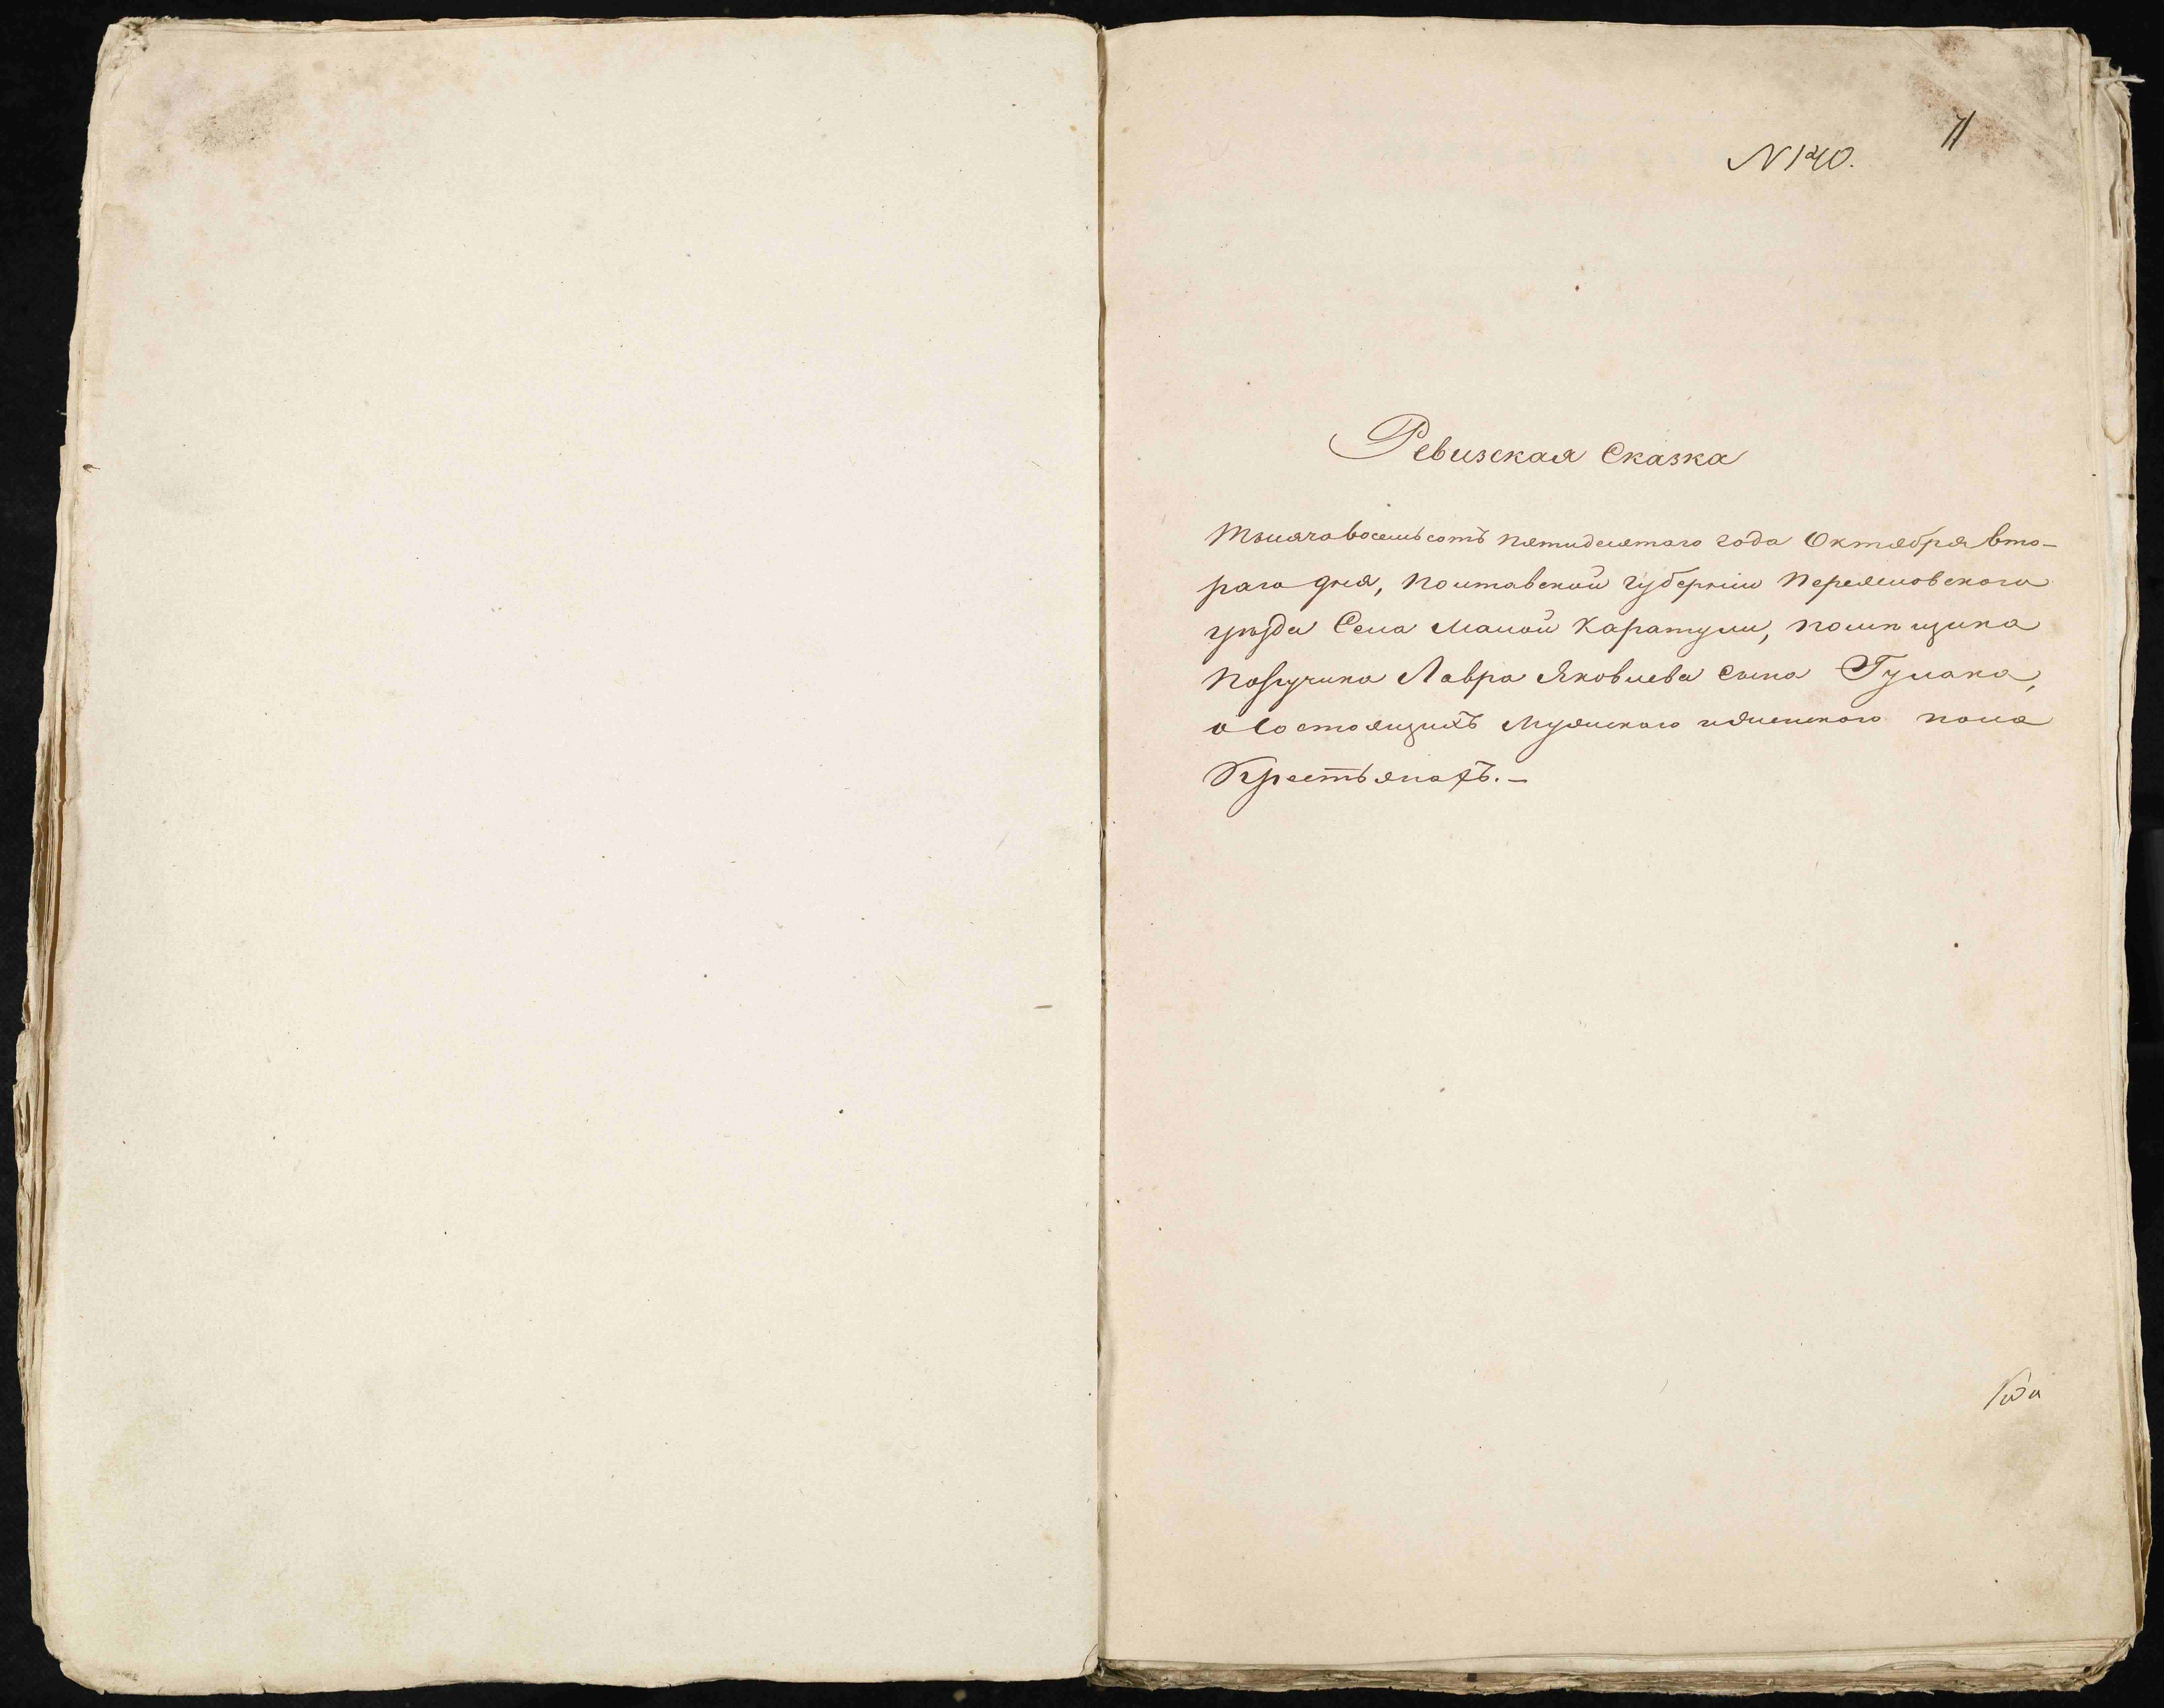 N 140.
Ревизская Сказка
тысяча восемь сотъ пятидесятого года Октября вто-
раго дня, Полтавской губерніи Переяславского
уѣзда Села Малой Каратули, помѣщика
Поручика Лавра Яковлева сына Гулака,
о состоящихъ мужескаго и женскаго пола
Крестьянахъ.-